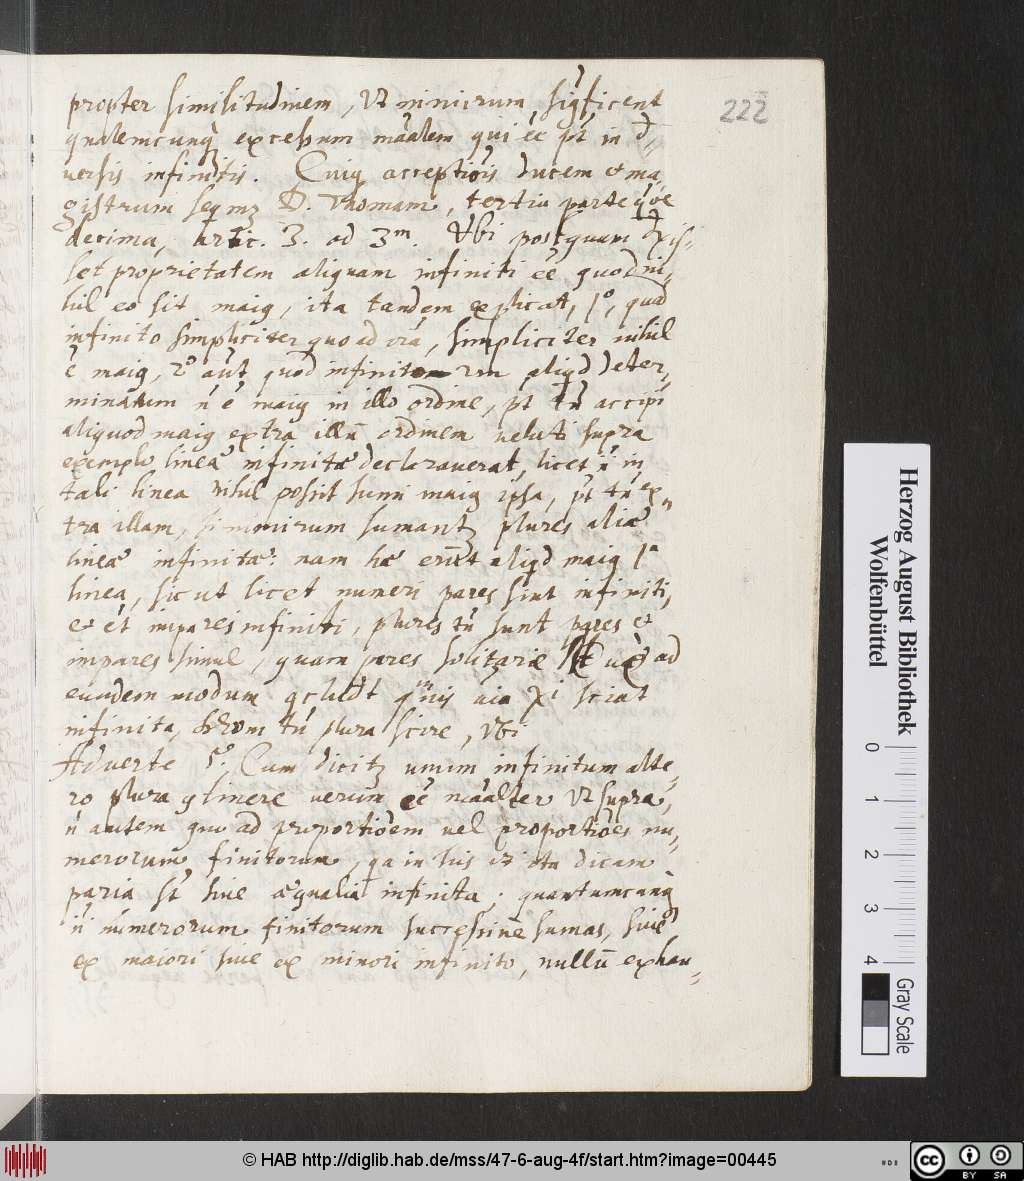 propter similitudinem, ut nimirum sigficent
qualemcunq excessum maalem qui ee pt in d
versis infinitis. Cuiq acceptiois ducem et ma,
gistrum seqmz D. Thomam, tertia parte qoe
decima, artic. 3. ad 3m. Ubi postquam dixis-
set proprietatem aliquam infiniti ee quod ni,
hil eo sit maiq, ita tandem explicat, 1o, quod
infinito simpliciter quo ad oia, simpliciter nihil
e maiq, 2o aut quod infinito rm aliqd deter,
minatum n e maiq in illo ordine, pt tn accipi
aliquod maiq extra illu ordinem veluti supra
exemplo linea infinitæ declaraverat, licet n in
tali linea nihil possit sumi maiq ipsa, pt tn ex
tra illam, si nimirum sumantz plures aliæ
lineæ infinitæ: nam hæ erut aliqd maiq 1a
linea, sicut licet numeri pares sint infiniti,
et et impares infiniti, plures tn sunt pares et
impares simul, quam pares solitarie ad
eundem modum qcludt qvis aia Xi sciat
infinita, Deum tn plura scire, Ubi
Adverte 5o. Cum dicitz unum infinitum alte-
ro plura qtinere verum ee maalter ut supra,
n autem quo ad proportioem vel proportioes nu-
merorum finitorum, qa in his ut ita dicam
paria st sive æqualia infinita; quantumcunq
n numerorum finitorum successive sumas, sive
ex maiori sive ex minori infinito, nullu exhau-
222
Herzog August Bibliothek
Wolfenbüttel
0 1 2 3 4
Gray Scale
© HAB http://diglib.hab.de/mss/47-6-aug-4f/start.htm?image=00445
cc BY SA